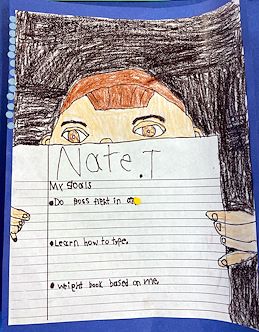 Nate.T
My goals
•Do Boss first in
•Learn how to type.
• weight book based on me.